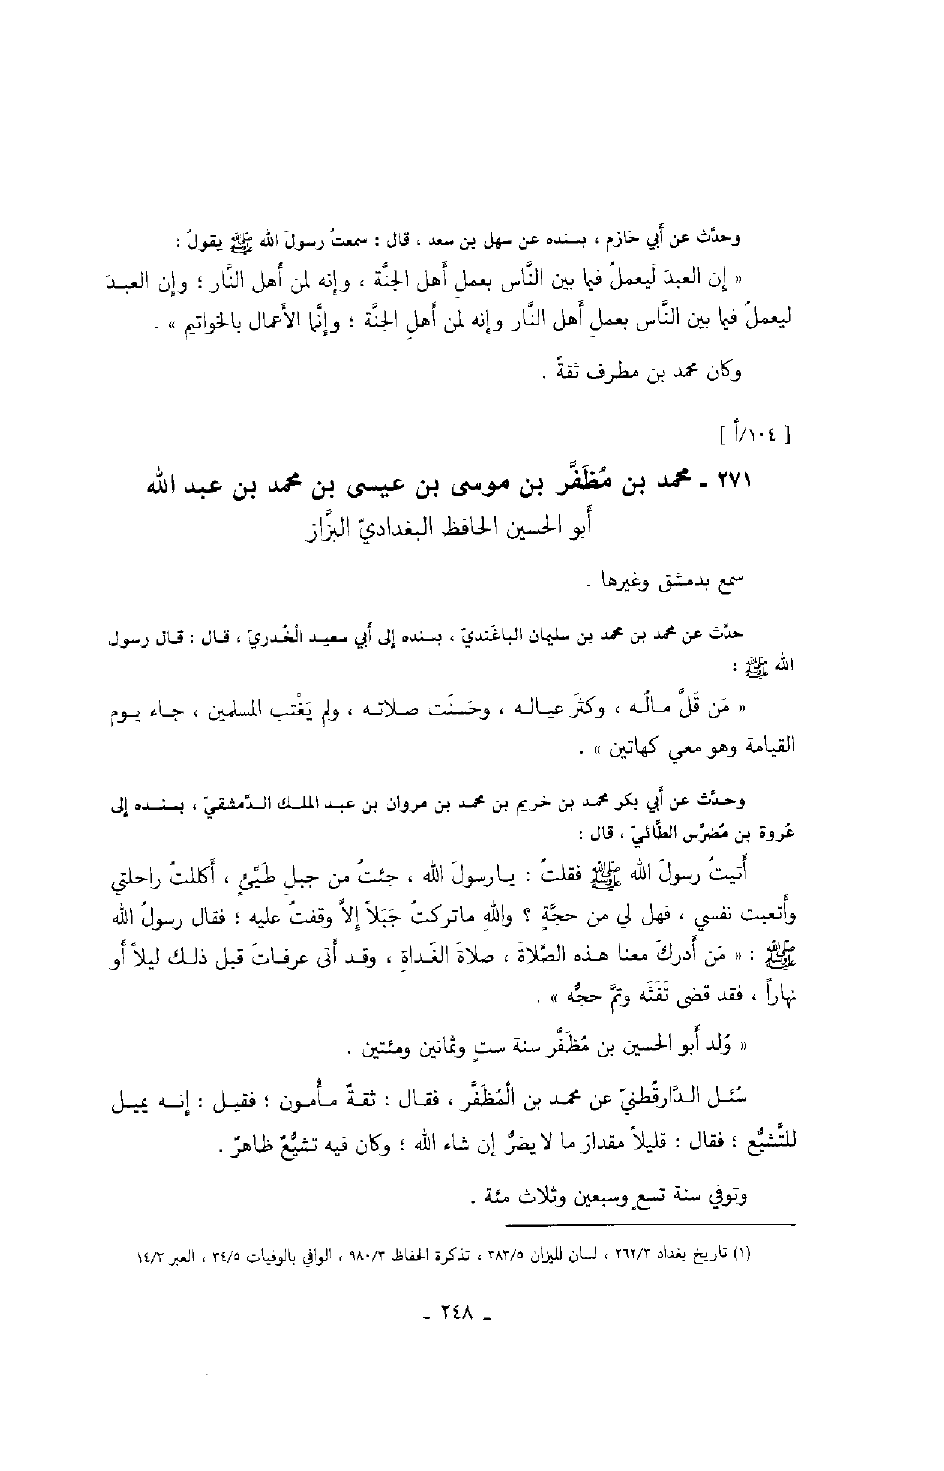 وحدَّث عن أبي خازم ، بسنده عن سهل بن سعد ، قال : سمعتُ رسولَ الله ﷺ يقولُ :
« إن العبدَ ليعملُ فيما بين النَّاس بعملِ أهل الجنَّة ، وإنه لمن أهل النَّار ؛ وإن العبدَ
ليعملُ فيما بين النَّاس بعملِ أهل النَّار وإنه لمن أهلِ الجنَّة ؛ وإنَّما الأعمال بالخواتيم » .
وكان محمد بن مطرف ثقةً .
[ ١٠٤/أ ]
٢٧١ ـ محمد بن مُظَفَّر بن موسى بن عيسى بن محمد بن عبد الله
أبو الحسين الحافظ البغداديّ البزَّاز
سمع بدمشق وغيرها .
حدَّث عن محمد بن محمد بن سليمان الباغَنديّ ، بسنده إلى أبي سعيد الخُدريّ ، قال : قال رسول
الله ﷺ :
« مَن قلَّ مالُه ، وكثرَ عياله ، وحَسنَت صلاته ، ولم يَغْتب المسلمين ، جاء يوم
القيامة وهو معي كهاتين » .
وحدَّث عن أبي بكر محمد بن خريم بن محمد بن مروان بن عبد الملك الدِّمشقيّ ، بسنده إلى
عُروة بن مُضرِّس الطَّائيّ ، قال :
أتيتُ رسولَ الله ﷺ فقلتُ : يارسولَ الله ، جئتُ من جبلِ طَيِّئٍ ، أكللتُ راحلتي
وأتعبت نفسي ، فهل لي من حجَّةٍ ؟ واللهِ ماتركتُ جَبَلاً إلاَّ وقفتُ عليه ؛ فقال رسولُ الله
ﷺ : « مَن أدركَ معنا هذه الصَّلاةَ ، صلاةَ الغَداةِ ، وقد أتى عرفاتَ قبل ذلك ليلاً أو
نهاراً ، فقد قضى تَفَثَه وتمَّ حجُّه » .
« وُلد أبو الحسين بن مُظفَّر سنة ستٍ وثمانين ومئتين .
سُئل الدَّارقُطنيّ عن محمد بن الْمُظَفَّر ، فقال : ثقةٌ مأمون ؛ فقيل : إنه يميل
للتَّشيُّع ؛ فقال : قليلاً مقدارَ ما لا يضرُّ إن شاء الله ؛ وكان فيه تشيُّعٌ ظاهرٌ .
وتوفي سنة تسعٍ وسبعين وثلاث مئة .
(١) تاريخ بغداد ٢٦٢/٣ ، لسان الميزان ٣٨٣/٥ ، تذكرة الحفاظ ٩٨٠/٣ ، الوافي بالوفيات ٣٤/٥ ، العبر ١٤/٣
ـ ٢٤٨ ـ